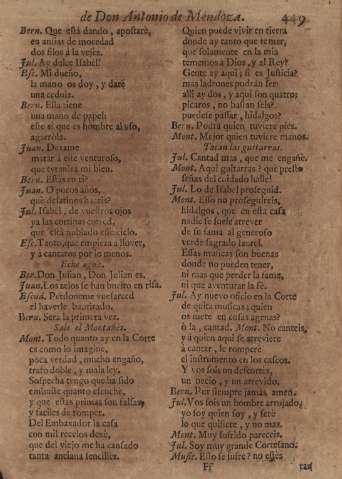 de Don Antonio de Mendoza. 449
Bern. Que està dando, apostarè,
en ansias de mocedad
dos filos à la vejez.
Jul. Ay dulce Isabel!
Esc. Mi dueño,
la mano os doy, y darè
una cedula.
Bern. Esta tiene
una mano de papel:
esse si que es hombre al uso,
agarròla.
Juan. Dexame
matar à este venturoso,
que tyraniza mi bien.
Bern. Estàs en ti?
Juan. O pocos años,
què desatinos haceis?
Jul. Isabel, de vuestros ojos
ya las cortinas corred,
que està nublado esse cielo.
Esc. Tanto, que empieza à llover,
y à cantaros por lo menos.
Echa agua.
Ber. Don Julian, Don Julian es.
Juan. Los zelos se han buelto en risa.
Escud. Perdoneme vuesarced
el haverle bautizado.
Bern. Serà la primera vez.
Sale el Montañès.
Mont. Todo quanto ay en la Corte
es como lo imaginè,
poca verdad, mucho engaño,
trato doble, y mala ley.
Sospecha tengo que ha sido
embuste quanto escuchè,
y que estas primas son falsas,
y faciles de romper.
Del Embaxador la casa
con mil recelos dexè,
que del viejo me ha cansado
tanta anciana sencillez.
Quien puede vivir en tierra
donde ay tanto que temer,
que solamente en la mia
tememos à Dios, y al Rey?
Gente ay aqui; si es Justicia?
mas ladrones podràn ser:
alli ay dos, y aqui son quatro:
picaros, no hablan seis?
puedese passar, hidalgos?
Bern. Podrà quien tuviere pies.
Mont. Mejor quien tuviere manos.
Tocan las guitarras.
Jul. Cantad mas, que me engañè.
Mont. Aqui guitarras? que presto
señas del cuidado hallè!
Jul. Lo de Isabel proseguid.
Mont. Esso no proseguireis,
hidalgos, que en esta casa
nadie se suele atrever
de su fama al generoso
verde sagrado laurel.
Essas musicas son buenas
donde no pueden tener,
ni mas que perder la fama,
ni que aventurar la fè.
Jul. Ay nuevo oficio en la Corte
de quita musicas: quien
os mete en cosas agenas?
ò la, cantad. Mont. No canteis,
y à quien aqui se atreviere
à cantar, le romperè
el instrumento en los cascos.
Y vos sois un descortès,
un necio, y un atrevido.
Bern. Por siempre jamàs amen.
Jul. Vos sois un hombre arrojado,
yo soy quien soy, y serè
lo que quisiere, y no mas.
Mont. Muy sufrido pareceis.
Jul. Soy muy grande Cortesano.
Music. Esto se sufre? no estès
Ff